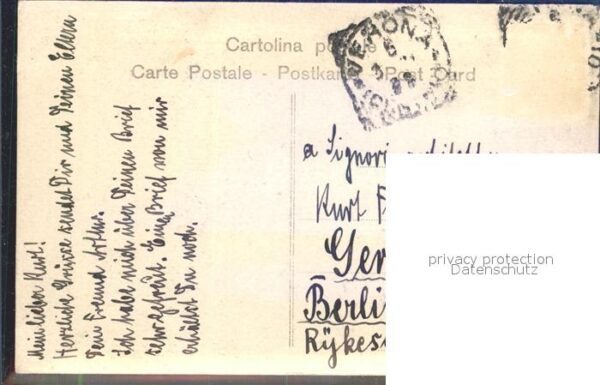 Cartolina postale
Carte Postale - Postkarte - Post Card
VERONA
Mein lieber Kurt!
Herzliche Grüsse sendet Dir und Deinen Eltern
Dein Freund Arthur.
Ich habe mich über Deinen Brief
sehr gefreut. Einen Brief von mir
erhältst Du noch.
a Signorino
Kurt F
Ger
Berli
Rykes
privacy protection
Datenschutz